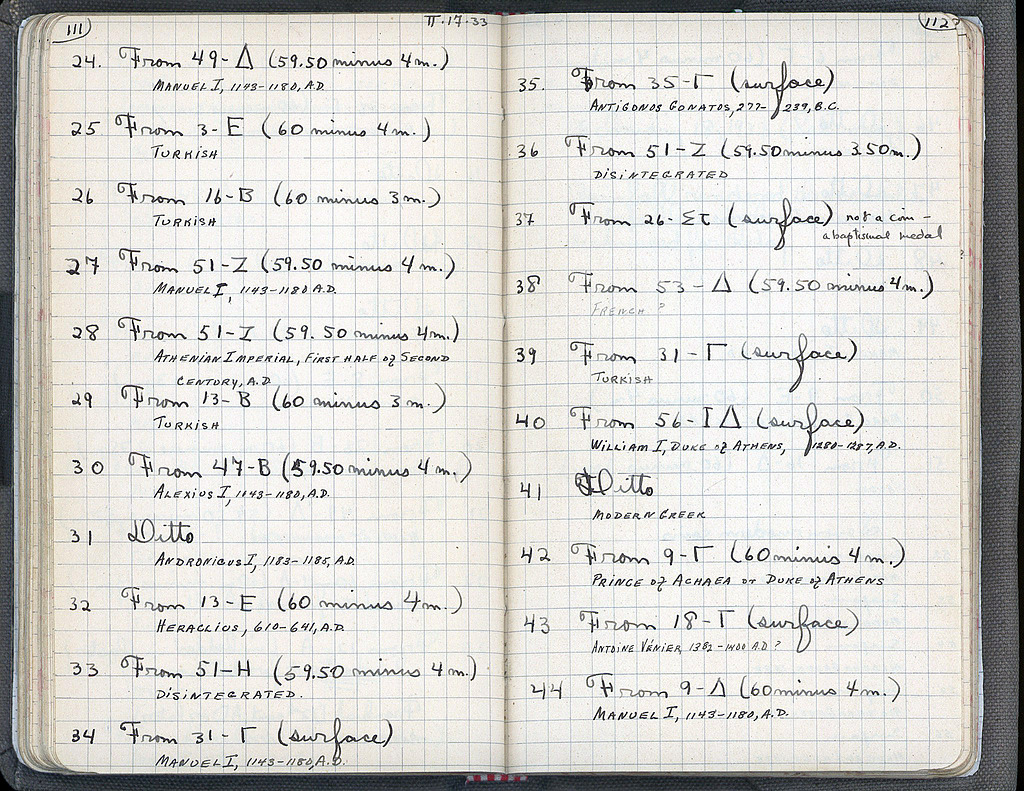 111
II·17·33
24. From 49-Δ (59.50 minus 4m.)
MANUEL I, 1143-1180, A.D.
25 From 3-E (60 minus 4m.)
TURKISH
26 From 16-B (60 minus 3m.)
TURKISH
27 From 51-Z (59.50 minus 4m.)
MANUEL I, 1143-1180 A.D.
28 From 51-Z (59.50 minus 4m.)
ATHENIAN IMPERIAL, FIRST HALF of SECOND
CENTURY, A.D.
29 From 13-B (60 minus 3m.)
TURKISH
30 From 47-B (59.50 minus 4m.)
ALEXIUS I, 1143-1180, A.D.
31 Ditto
ANDRONICUS I, 1183-1185, A.D.
32 From 13-E (60 minus 4m.)
HERACLIUS, 610-641, A.D.
33 From 51-H (59.50 minus 4m.)
DISINTEGRATED.
34 From 31-Γ (surface)
MANUEL I, 1143-1180, A.D.
112
35. From 35-Γ (surface)
ANTIGONOS GONATOS, 277-239, B.C.
36 From 51-Z (59.50 minus 3.50m.)
DISINTEGRATED
37 From 26-ΣΤ (surface) not a coin -
a baptismal medal
38 From 53-Δ (59.50 minus 4m.)
FRENCH ?
39 From 31-Γ (surface)
TURKISH
40 From 56-IΔ (surface)
WILLIAM I, DUKE of ATHENS, 1280-1287, A.D.
41 Ditto
MODERN GREEK
42 From 9-Γ (60 minus 4m.)
PRINCE of ACHAEA or DUKE of ATHENS
43 From 18-Γ (surface)
ANTOINE VÉNIER 1382-1400 A.D ?
44 From 9-Δ (60 minus 4m.)
MANUEL I, 1143-1180, A.D.